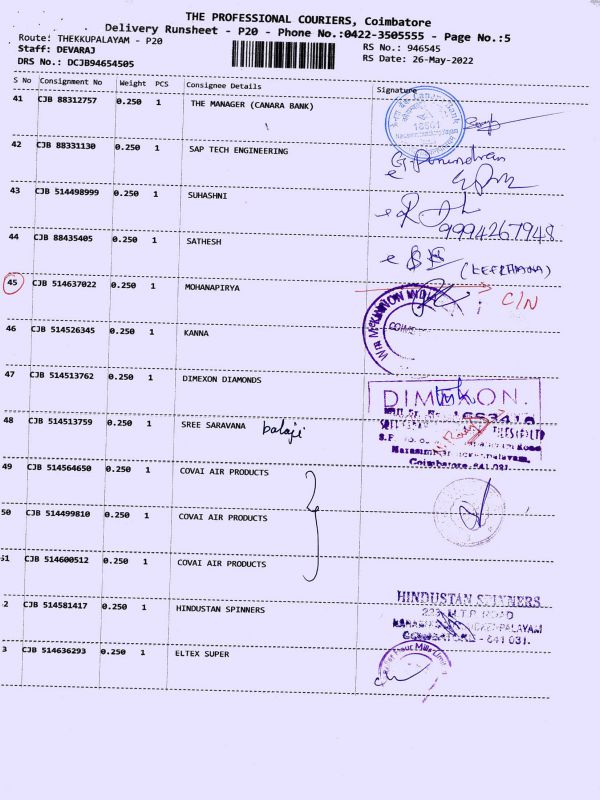 THE PROFESSIONAL COURIERS, Coimbatore
Delivery Runsheet - P20 - Phone No.:0422-3505555 - Page No.:5
Route: THEKKUPALAYAM - P20
Staff: DEVARAJ
DRS No.: DCJB94654505
RS No.: 946545
RS Date: 26-May-2022
S No Consignment No Weight PCS Consignee Details Signature
41 CJB 88312757 0.250 1 THE MANAGER (CANARA BANK)
42 CJB 88331130 0.250 1 SAP TECH ENGINEERING
43 CJB 514498999 0.250 1 SUHASHNI
9994267948
44 CJB 88435405 0.250 1 SATHESH
45 CJB 514637022 0.250 1 MOHANAPIRYA
C/N
46 CJB 514526345 0.250 1 KANNA
47 CJB 514513762 0.250 1 DIMEXON DIAMONDS
48 CJB 514513759 0.250 1 SREE SARAVANA balaji
Coimbatore-641 031.
49 CJB 514564650 0.250 1 COVAI AIR PRODUCTS
50 CJB 514499810 0.250 1 COVAI AIR PRODUCTS
51 CJB 514600512 0.250 1 COVAI AIR PRODUCTS
2 CJB 514581417 0.250 1 HINDUSTAN SPINNERS
HINDUSTAN SPINNERS
M.T.P. ROAD
COIMBATORE - 641 031.
3 CJB 514636293 0.250 1 ELTEX SUPER